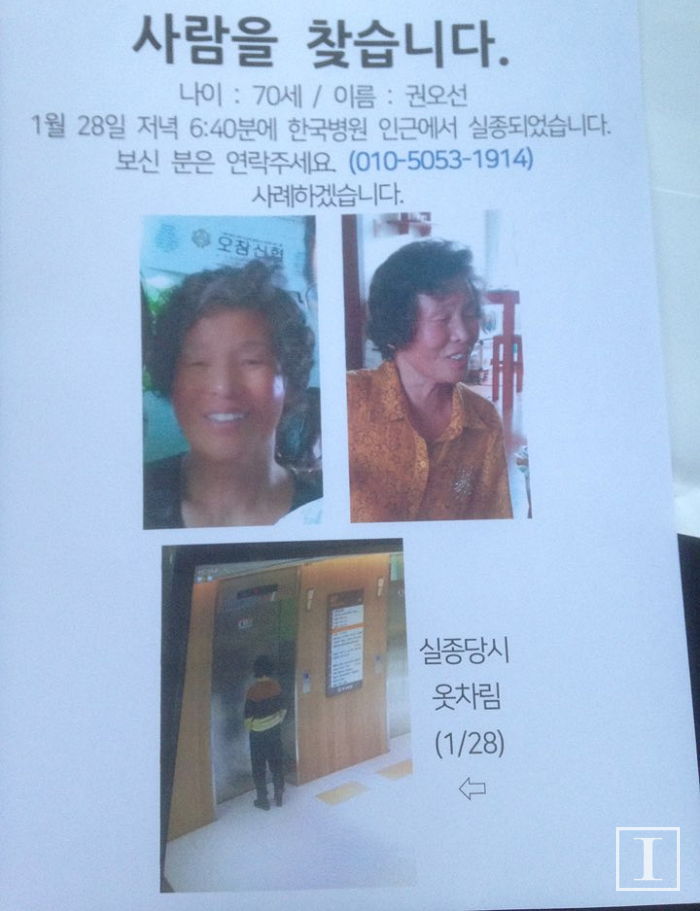 사람을 찾습니다.
나이 : 70세 / 이름 : 권오선
1월 28일 저녁 6:40분에 한국병원 인근에서 실종되었습니다.
보신 분은 연락주세요. (010-5053-1914)
사례하겠습니다.
오창신협
실종당시
옷차림
(1/28)
⇦
I